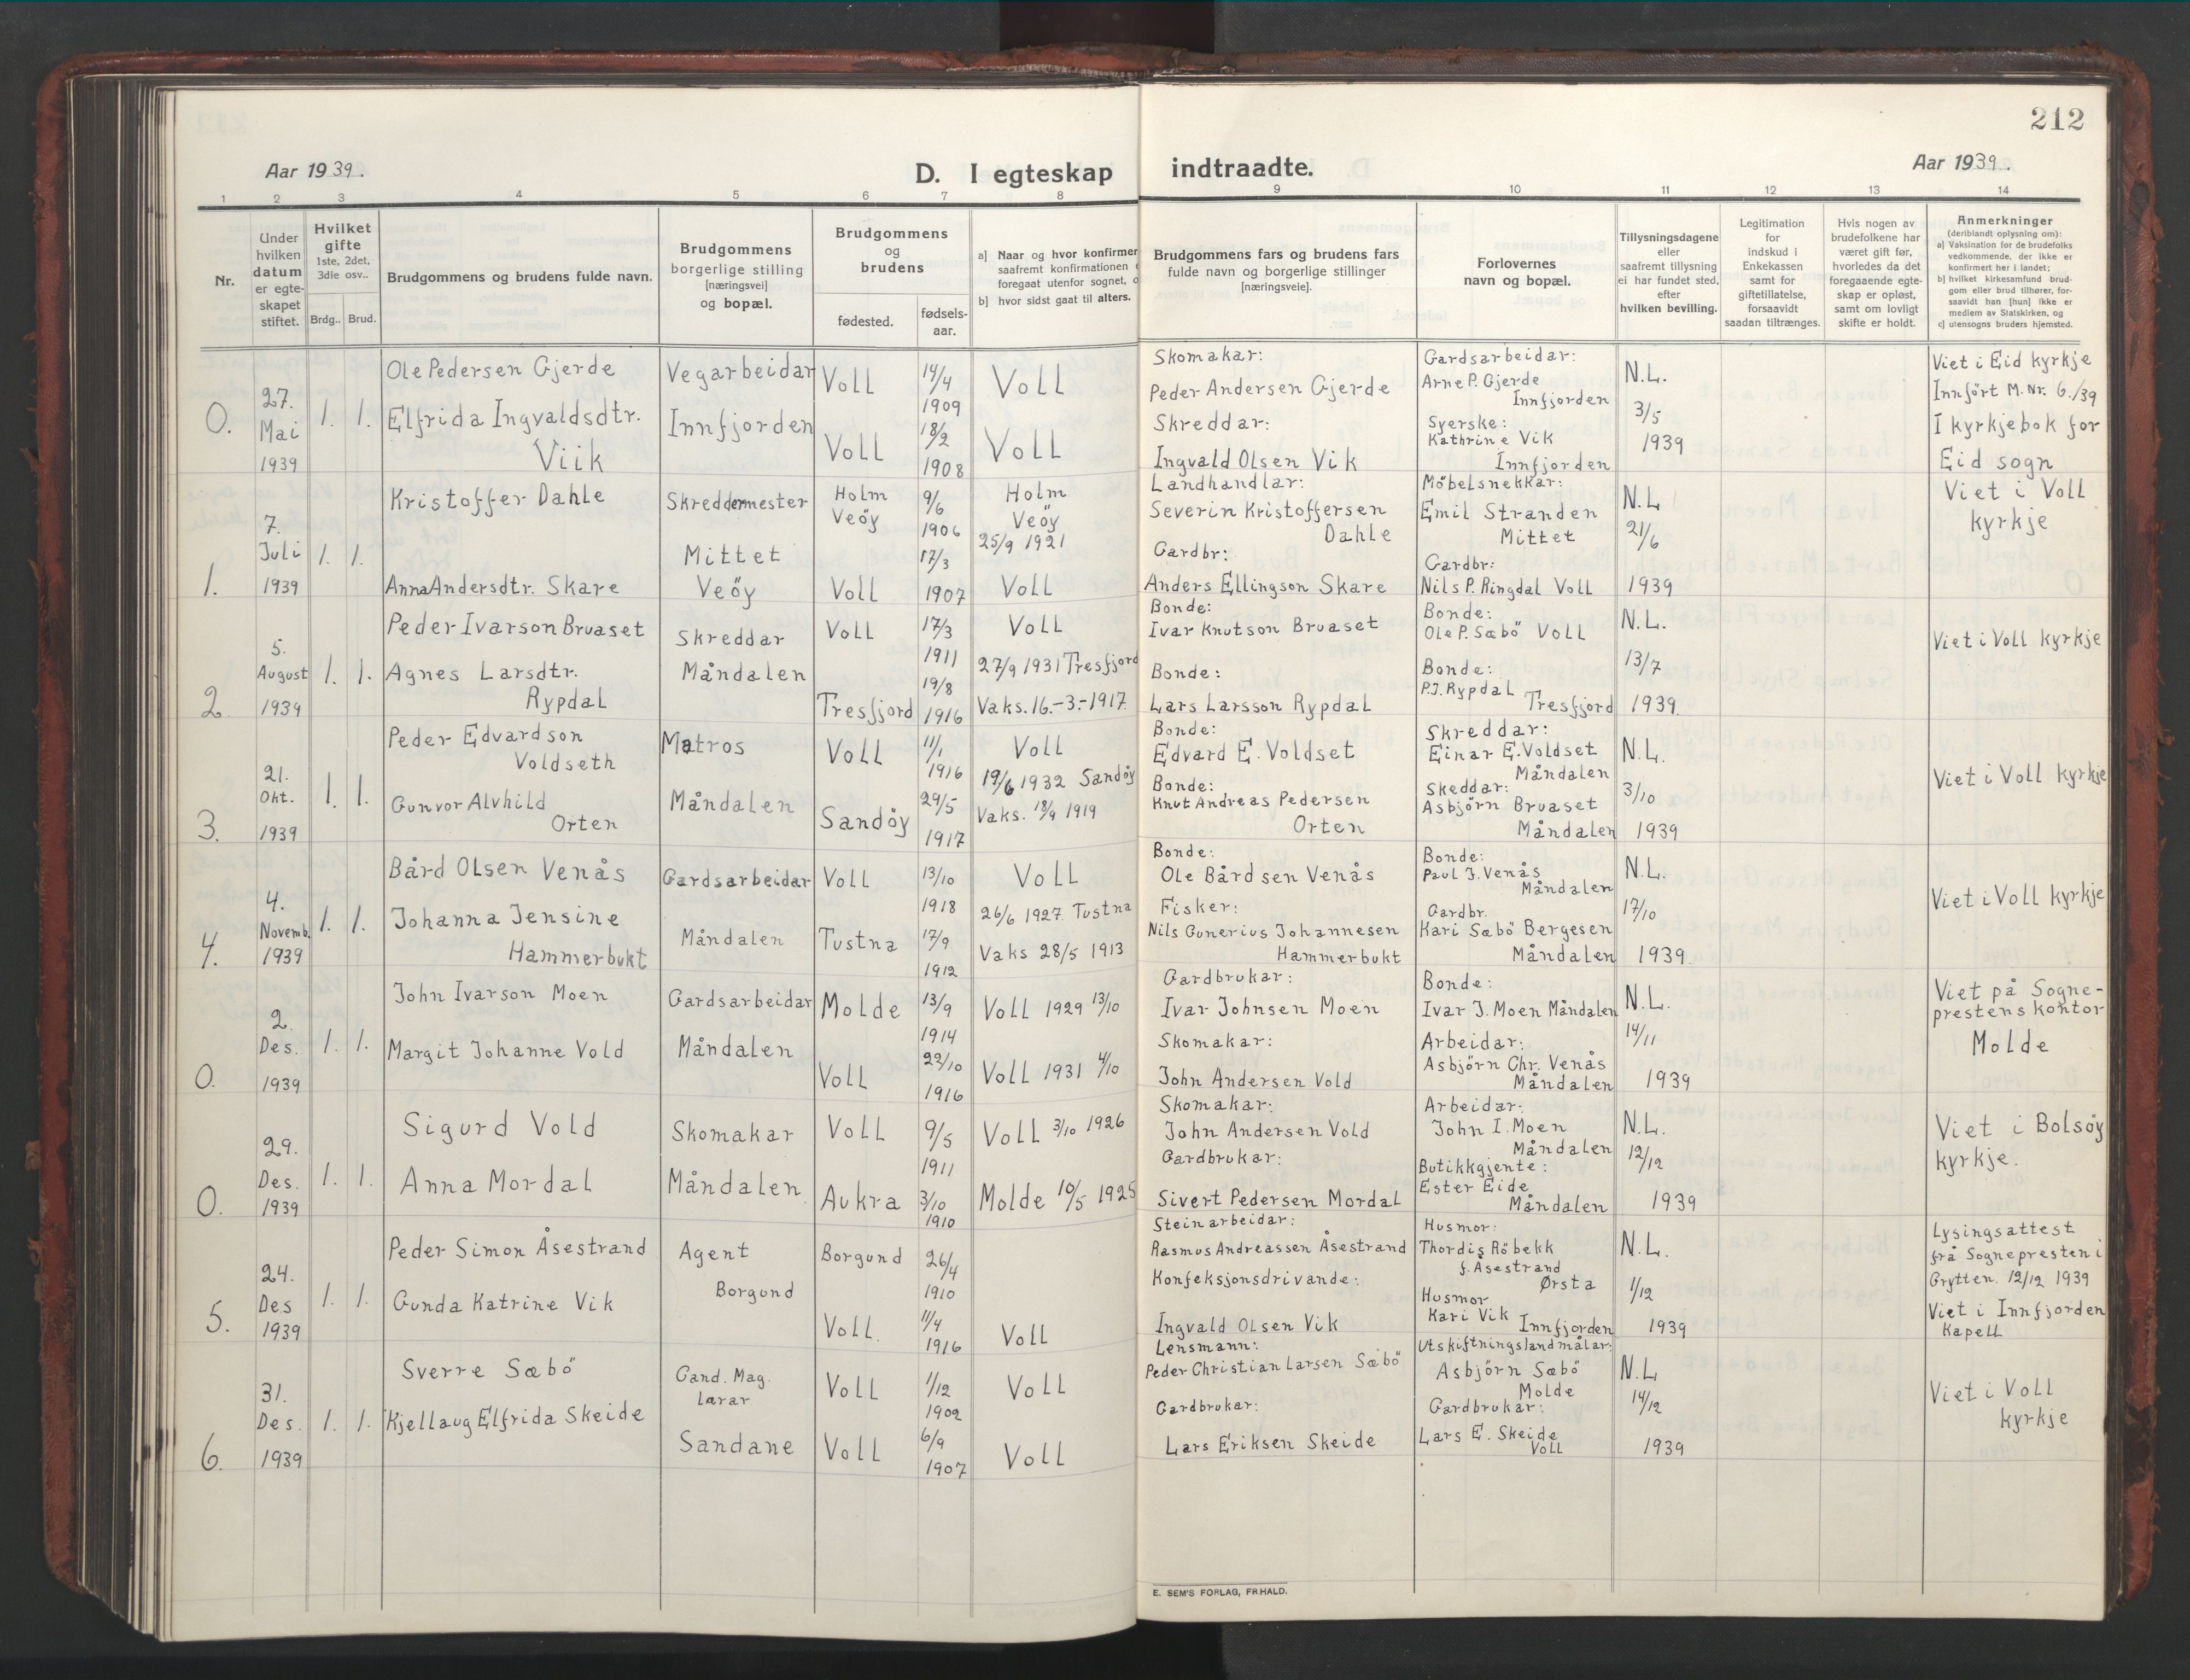 212
Aar 1939.
D. I egteskap indtraadte.
Aar 1939.
1 2 3 4 5 6 7 8 9 10 11 12 13 14
Nr.
Under hvilken datum er egte-skapet stiftet.
Hvilket gifte
1ste, 2det, 3die osv..
Brdg.. Brud.
Brudgommens og brudens fulde navn.
Brudgommens borgerlige stilling [næringsvei] og bopæl.
Brudgommens og brudens
fødested.
fødsels-aar.
a) Naar og hvor konfirmer
saafremt konfirmationen
foregaat utenfor sognet,
b) hvor sidst gaat til alters.
Brudgommens fars og brudens fars
fulde navn og borgerlige stillinger
[næringsveie].
Forlovernes
navn og bopæl.
Tillysningsdagene
eller
saafremt tillysning
ei har fundet sted,
efter
hvilken bevilling.
Legitimation
for
indskud i
Enkekassen
samt for
giftetillatelse,
forsaavidt
saadan tiltrænges.
Hvis nogen av
brudefolkene har
været gift før,
hvorledes da det
foregaaende egte-
skap er opløst,
samt om lovligt
skifte er holdt.
Anmerkninger
(deriblandt oplysning om):
a) Vaksination for de brudefolks
vedkommende, der ikke er
konfirmert her i landet;
b) hvilket kirkesamfund brud-
gom eller brud tilhører, for-
saavidt han [hun] ikke er
medlem av Statskirken, og
c) utensogns bruders hjemsted.
0.
27.
Mai
1939
1. 1.
Ole Pedersen Gjerde
Elfrida Ingvaldsdtr.
Viik
Vegarbeidar
Innfjorden
Voll
Voll
14/4
1909
18/2
1908
Voll
Voll
Skomakar:
Peder Andersen Gjerde
Skreddar:
Ingvald Olsen Vik
Gardsarbeidar:
Arne P. Gjerde
Innfjorden
Syerske:
Kathrine Vik
Innfjorden
N.L.
3/5
1939
Viet i Eid kyrkje
Innfört M.Nr. 6./39
I kyrkjebok for
Eid sogn
1.
7.
Juli
1939
1. 1.
Kristoffer Dahle
Anna Andersdtr. Skare
Skreddermester
Mittet
Veöy
Holm
Veöy
Voll
9/6
1906
17/3
1907
Holm
Veöy
25/9 1921
Voll
Landhandlar:
Severin Kristoffersen
Dahle
Gardbr:
Anders Ellingson Skare
Möbelsnekkar:
Emil Stranden
Mittet
Gardbr:
Nils P. Ringdal Voll
N.L
21/6
1939
Viet i Voll
kyrkje
2.
5.
August
1939
1. 1.
Peder Ivarson Bruaset
Agnes Larsdtr.
Rypdal
Skreddar
Måndalen
Voll
Tresfjord
17/3
1911
19/8
1916
Voll
27/9 1931 Tresfjord
Vaks. 16.-3.-1917.
Bonde:
Ivar Knutson Bruaset
Bonde:
Lars Larsson Rypdal
Bonde:
Ole P. Sæbö Voll
Bonde:
P.J. Rypdal
Tresfjord
N.L.
13/7
1939.
Viet i Voll kyrkje
3.
21.
Okt.
1939
1. 1.
Peder Edvardson
Voldseth
Gunvor Alvhild
Orten
Matros
Måndalen
Voll
Sandöy
11/1
1916
29/5
1917
Voll
19/6 1932 Sandöy
Vaks. 18/9 1919
Bonde:
Edvard E. Voldset
Bonde:
Knut Andreas Pedersen
Orten
Skreddar:
Einar E. Voldset
Måndalen
Skeddar:
Asbjörn Bruaset
Måndalen
N.L.
3/10
1939
Viet i Voll kyrkje
4.
4.
Novemb.
1939
1. 1.
Bård Olsen Venås
Johanna Jensine
Hammerbukt
Gardsarbeidar
Måndalen
Voll
Tustna
13/10
1918
17/9
1912
Voll
26/6 1927. Tustna
Vaks 28/5 1913
Bonde:
Ole Bårdsen Venås
Fisker:
Nils Gunerius Johannesen
Hammerbukt
Bonde:
Paul J. Venås
Måndalen
Gardbr.
Kari Sæbö Bergesen
Måndalen
N.L.
17/10
1939.
Viet i Voll kyrkje
0.
2.
Des.
1939
1. 1.
John Ivarson Moen
Margit Johanne Vold
Gardsarbeidar
Måndalen
Molde
Voll
13/9
1914
22/10
1916
Voll 1929 13/10
Voll 1931 4/10
Gardbrukar:
Ivar Johnsen Moen
Skomakar:
John Andersen Vold
Bonde:
Ivar J. Moen Måndalen
Arbeidar:
Asbjörn Chr. Venås
Måndalen
N.L.
14/11
1939
Viet på Sogne-
prestens kontor
Molde
0.
29.
Des.
1939
1. 1.
Sigurd Vold
Anna Mordal
Skomakar
Måndalen
Voll
Aukra
9/5
1911
3/10
1910
Voll 3/10 1926
Molde 10/5 1925
Skomakar:
John Andersen Vold
Gardbrukar:
Sivert Pedersen Mordal
Arbeidar:
John I. Moen
Måndalen
Butikkgjente:
Ester Eide
Måndalen
N.L.
12/12
1939
Viet i Bolsöy
kyrkje.
5.
24.
Des
1939
1. 1.
Peder Simon Åsestrand
Gunda Katrine Vik
Agent
Borgund
Borgund
Voll.
26/4
1910
11/4
1916
Voll
Steinarbeidar:
Rasmus Andreassen Åsestrand
Konfeksjonsdrivande:
Ingvald Olsen Vik
Husmor:
Thordis Röbekk
f. Åsestrand
Ørsta
Husmor
Kari Vik
Innfjorden
N.L.
1/12
1939
Lysingsattest
frå Sognepresten i
Grytten. 12/12 1939
Viet i Innfjorden
Kapell
6.
31.
Des.
1939
1. 1.
Sverre Sæbö
Kjellaug Elfrida Skeide
Cand. Mag.
lærar
Sandane
Voll
Voll
1/12
1902
6/9
1907
Voll
Voll
Lensmann:
Peder Christian Larsen Sæbö
Gardbrukar:
Lars Eriksen Skeide
Utskiftningslandmålar:
Asbjörn Sæbö
Molde
Gardbrukar:
Lars E. Skeide
Voll
N.L
14/12
1939
Viet i Voll
kyrkje
E. SEM'S FORLAG, FR.HALD.